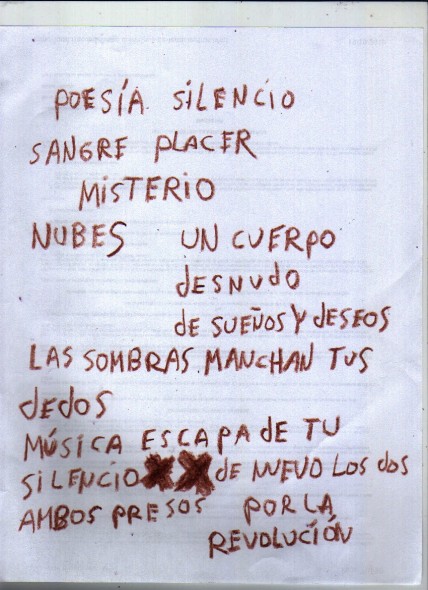 POESÍA SILENCIO
SANGRE PLACER
MISTERIO
NUBES UN CUERPO
DESNUDO
DE SUEÑOS Y DESEOS
LAS SOMBRAS MANCHAN TUS
DEDOS
MÚSICA ESCAPA DE TU
SILENCIO DE NUEVO LOS DOS
AMBOS PRESOS POR LA
REVOLUCIÓN